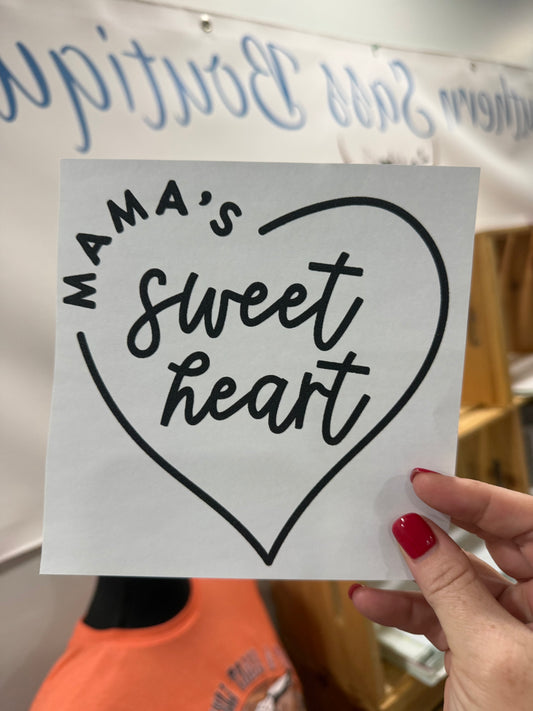 Southern Sass Boutique
MAMA'S
sweet
heart